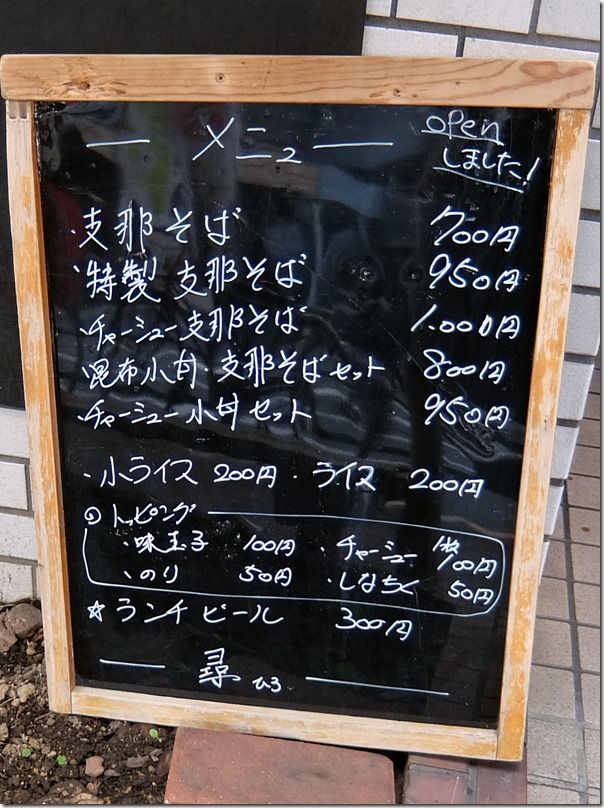 メニュー
open
しました!
・支那そば 700円
・特製 支那そば 950円
・チャーシュー支那そば 1.000円
・昆布小丼・支那そばセット 800円
・チャーシュー小丼セット 950円
・小ライス 200円 ・ライス 200円
◎トッピング
・味玉子 100円 ・チャーシュー 1枚 100円
・のり 50円 ・しなちく 50円
☆ランチビール 300円
尋 ひろ